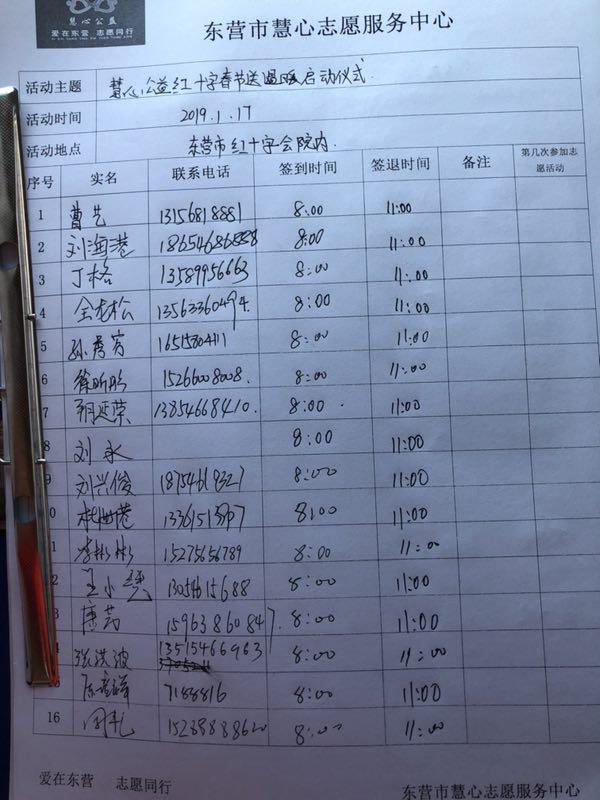 慧心公益
爱在东营 志愿同行
东营市慧心志愿服务中心
活动主题 慧心公益红十字春节送温暖启动仪式
活动时间 2019.1.17
活动地点 东营市红十字会院内.
序号 实名 联系电话 签到时间 签退时间 备注 第几次参加志愿活动
1 曹艺 13156818881 8:00 11:00
2 刘海港 18654686888 8:00 11:00
3 丁格 13589956663 8:00 11:00
4 全龙松 13563360494. 8:00 11:00
5 8:00 11:00
6 徐昕彤 15266008008. 8:00 11:00
7 13854668410. 8:00 11:00
8 刘永 8:00 11:00
9 刘兴俊 8:00 11:00
0 8:00 11:00
1 李彬彬 15275656789 8:00 11:00
2 王小 8:00 11:00
3 15963860847. 8:00 11:00
张洪波 13515466963 8:00 11:00
7188816 8:00 11:00
16 8:00 11:00
爱在东营 志愿同行
东营市慧心志愿服务中心